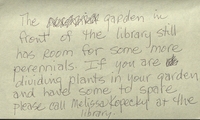 The garden in
front of the library still
has room for some more
perennials. If you are
dividing plants in your garden
and have some to spare
please call Melissa Kopecky at the
library